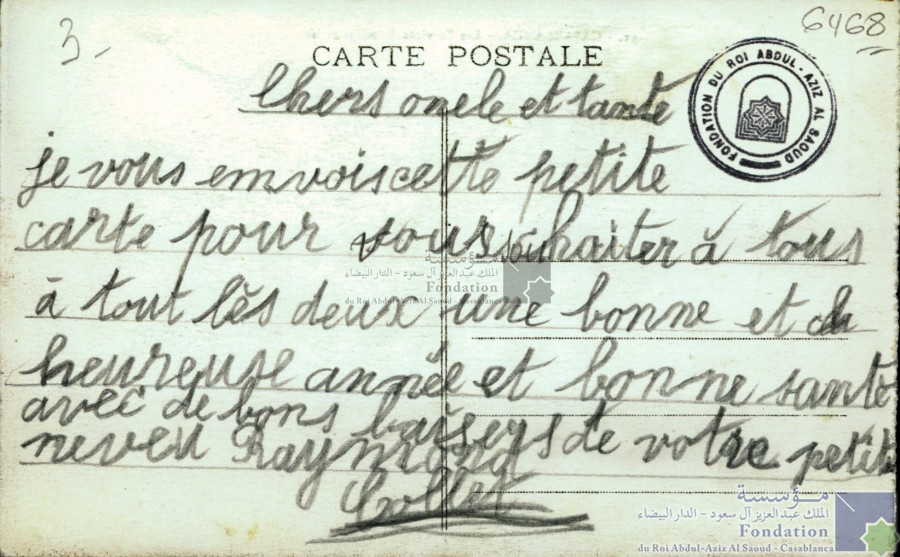 3.-
6468
CARTE POSTALE
FONDATION DU ROI ABDUL-AZIZ AL SAOUD
Chers oncle et tante
je vous emvois cette petite
carte pour vous souhaiter à tous
à tout lès deux une bonne et
heureuse année et bonne santé
avec de bons baisers de votre petit
neveu Raymond
Collet
مؤسسة
الملك عبد العزيز آل سعود - الدار البيضاء
Fondation
du Roi Abdul-Aziz Al Saoud - Casablanca
مؤسسة
الملك عبد العزيز آل سعود - الدار البيضاء
Fondation
du Roi Abdul-Aziz Al Saoud - Casablanca